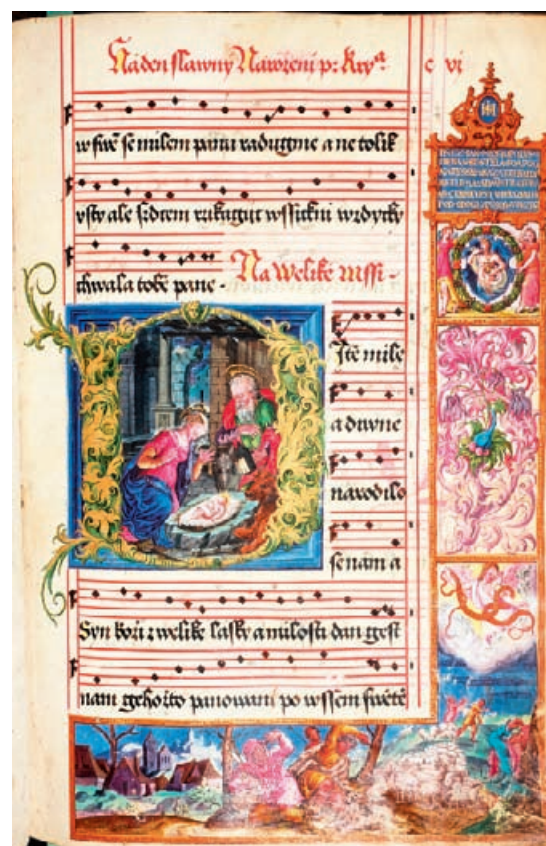 Na den slawny Narozeni p: Kry c vi
w swe se milem panu radugme a ne tolik
vsty ale srdcem wssickni wzdycky
chwala tobě pane · Na welike missi ·
DJtě mile
a diwne
narodilo
se nam a
Syn boži z welike lasky a milosti dan gest
nam gehožto panowani po wssem swětě